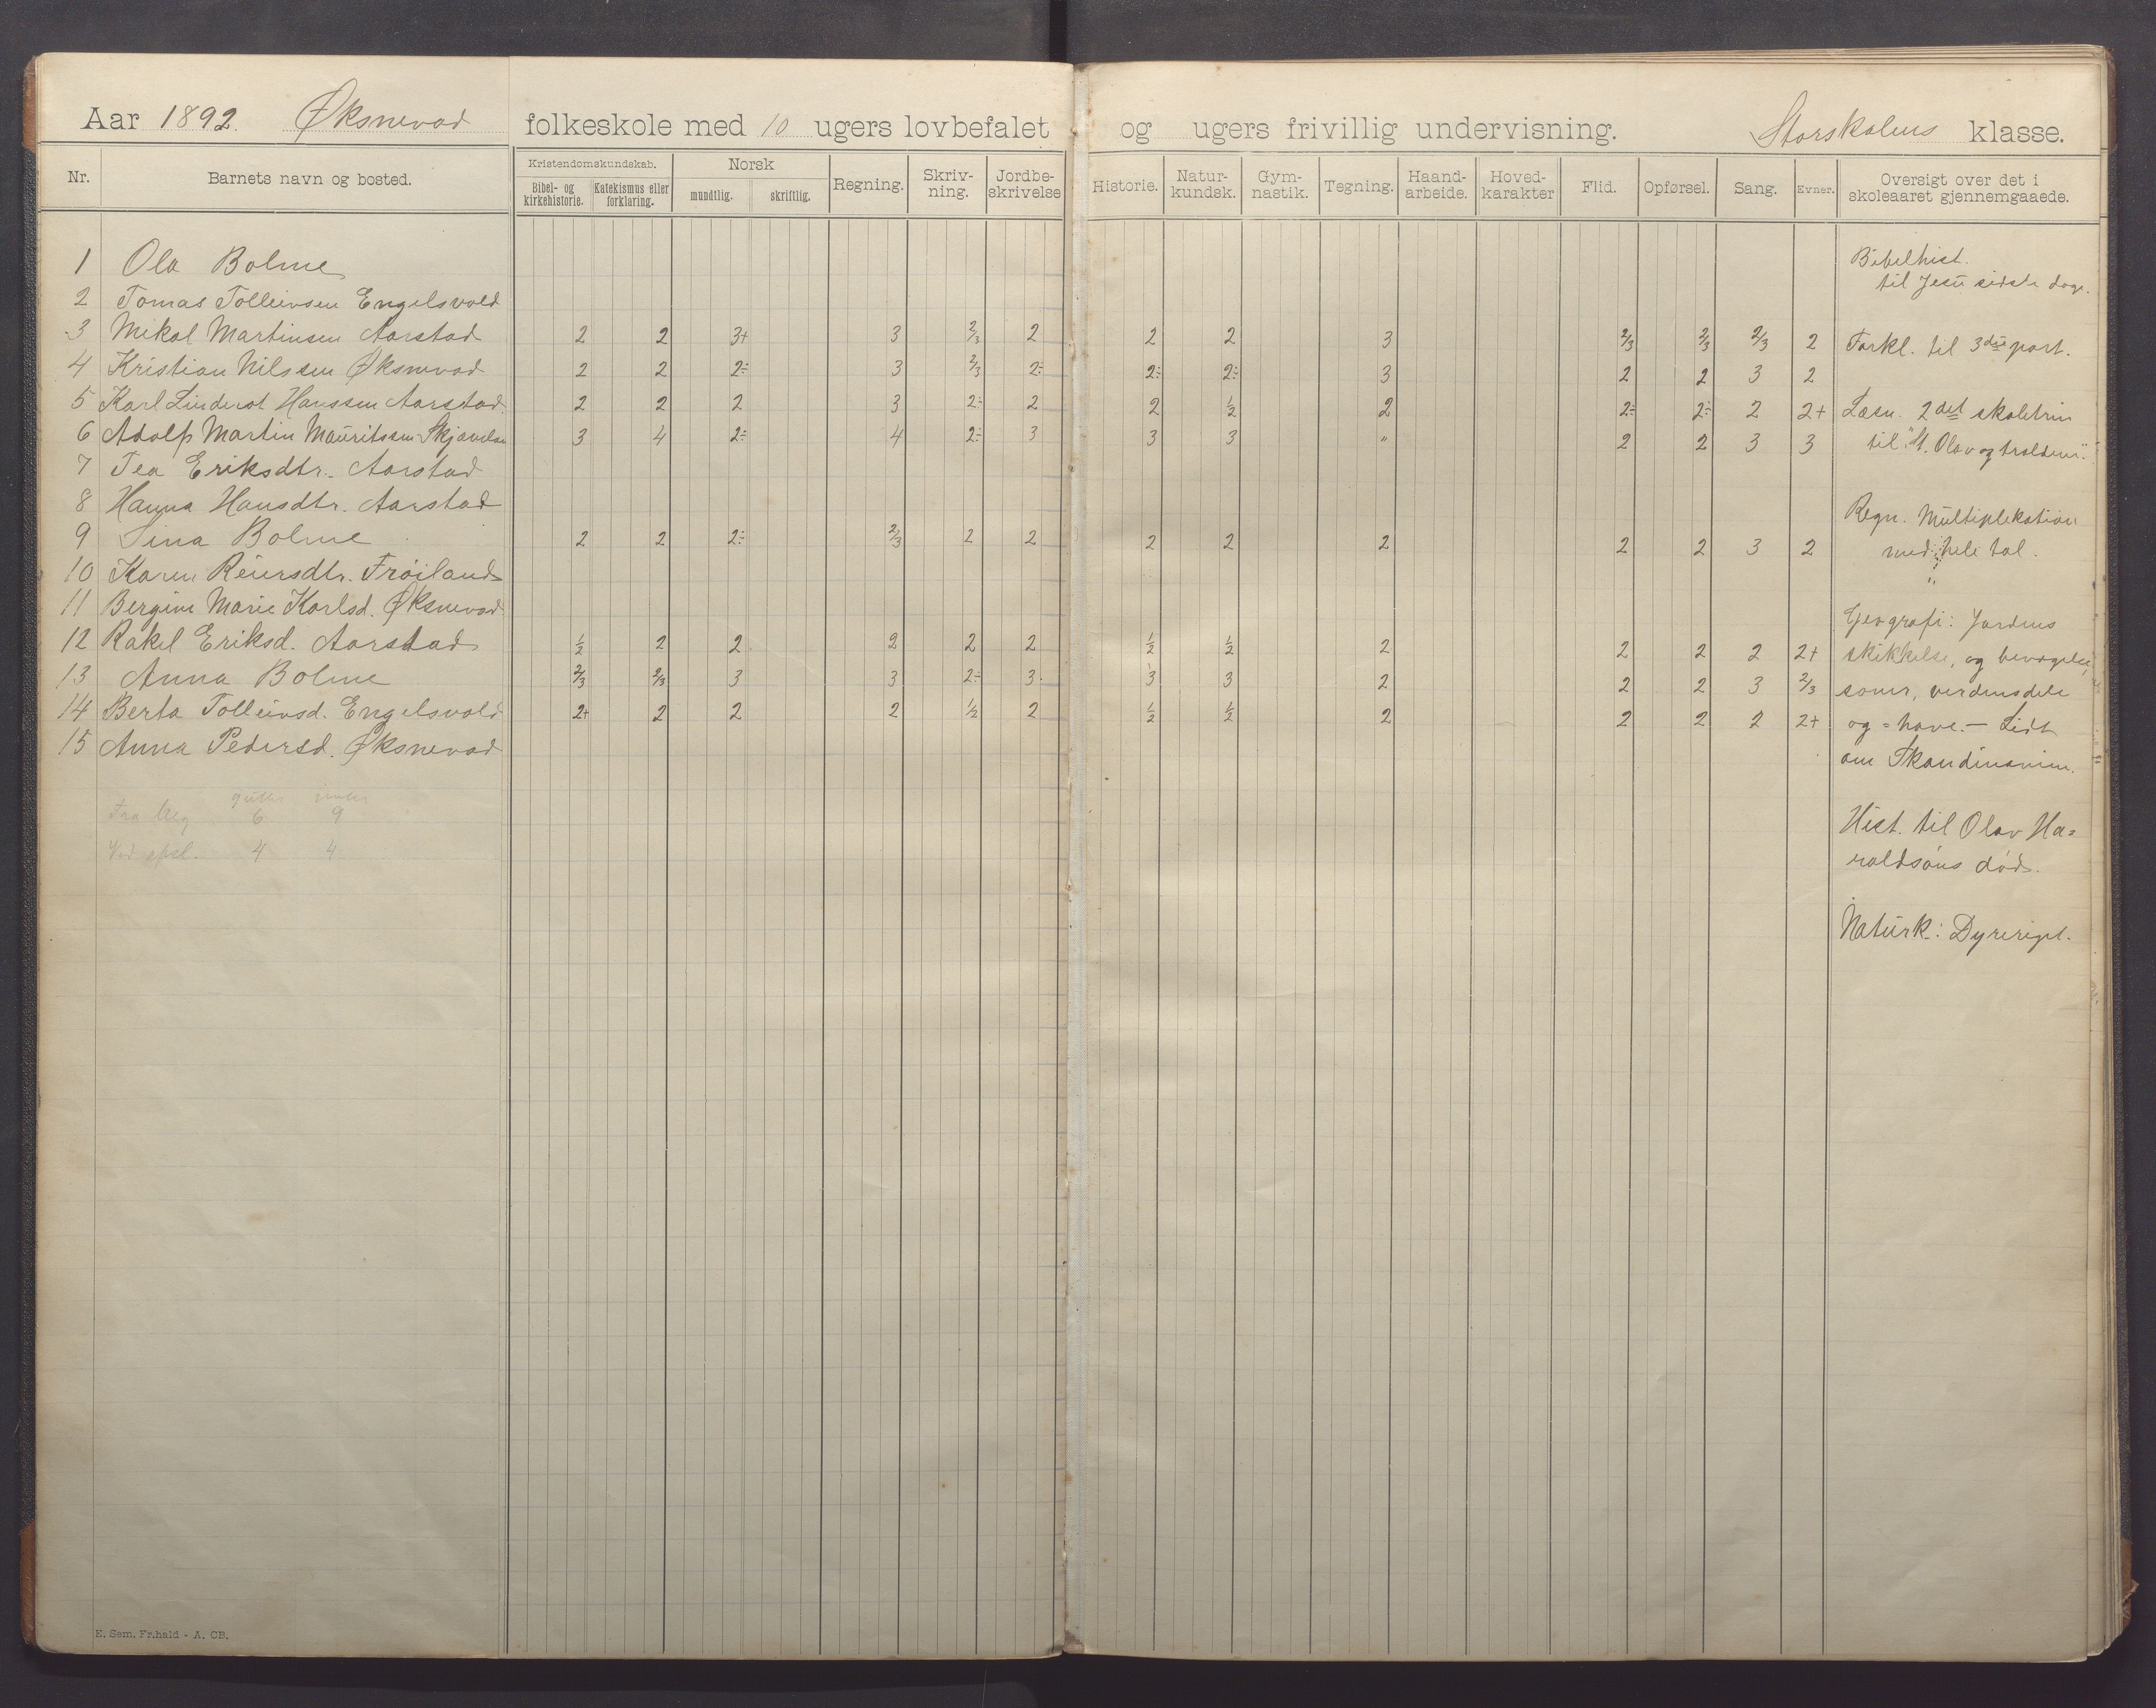 Aar 1892. Øksnevad folkeskole med 10 ugers lovbefalet og ugers frivillig undervisning. Storskolens klasse.
Nr. Barnets navn og bosted. Kristendomskundskab. Bibel- og kirkehistorie. Katekismus eller forklaring. Norsk mundtlig. skriftlig. Regning. Skriv-ning. Jordbe-skrivelse Historie. Natur-kundsk. Gym-nastik. Tegning. Haand-arbeide. Hoved-karakter Flid. Opførsel. Sang. Evner. Oversigt over det i skoleaaret gjennemgaaede.
1 Ola Bolme Bibelhist.
2 Tomas Tolleivsen Engelsvold til Jesu sidste dage.
3 Mikal Martinsen Aarstad 2 2 3+ 3 2/3 2 2 2 3 2/3 2/3 2/3 2 Forkl. til 3die part.
4 Kristian Nilssen Øksnevad 2 2 2÷ 3 2/3 2÷ 2÷ 2÷ 3 2 2 3 2
5 Karl Linderot Hanssen Aarstad. 2 2 2 3 2÷ 2 2 1/2 2 2÷ 2÷ 2 2+ Læsn. 2det skoletrin
6 Adolf Martin Mauritssen 3 4 2÷ 4 2÷ 3 3 3 " 2 2 3 3 til "St. Olav og troldene".
7 Tea Eriksdtr. Aarstad
8 Hanna Hansdtr. Aarstad Regn. Multiplekation
9 Sina Bolme 2 2 2÷ 2/3 2 2 2 2 2 2 2 3 2 med hele tal.
10 Karen Reiersdtr. Frøiland
11 Bergine Marie Karlsd. Øksnevad Geografi: Jordens
12 Rakel Eriksd. Aarstad 1/2 2 2 2 2 2 1/2 1/2 2 2 2 2 2+ skikkelse, og bevægelse,
13 Anna Bolme 2/3 2/3 3 3 2÷ 3 3 3 2 2 2 3 2/3 soner, verdensdele
14 Berta Tolleivsd. Engelsvold 2+ 2 2 2 1/2 2 1/2 1/2 2 2 2 2 2+ og = have. — Lidt
15 Anna Pedersd. Øksnevad om Skandinavien.
gutter jenter
6 9 Hist. til Olav Ha=
4 4 raldsøns død.
Naturk.: Dyreriget.
E. Sem. Fr.hald - A. CB.